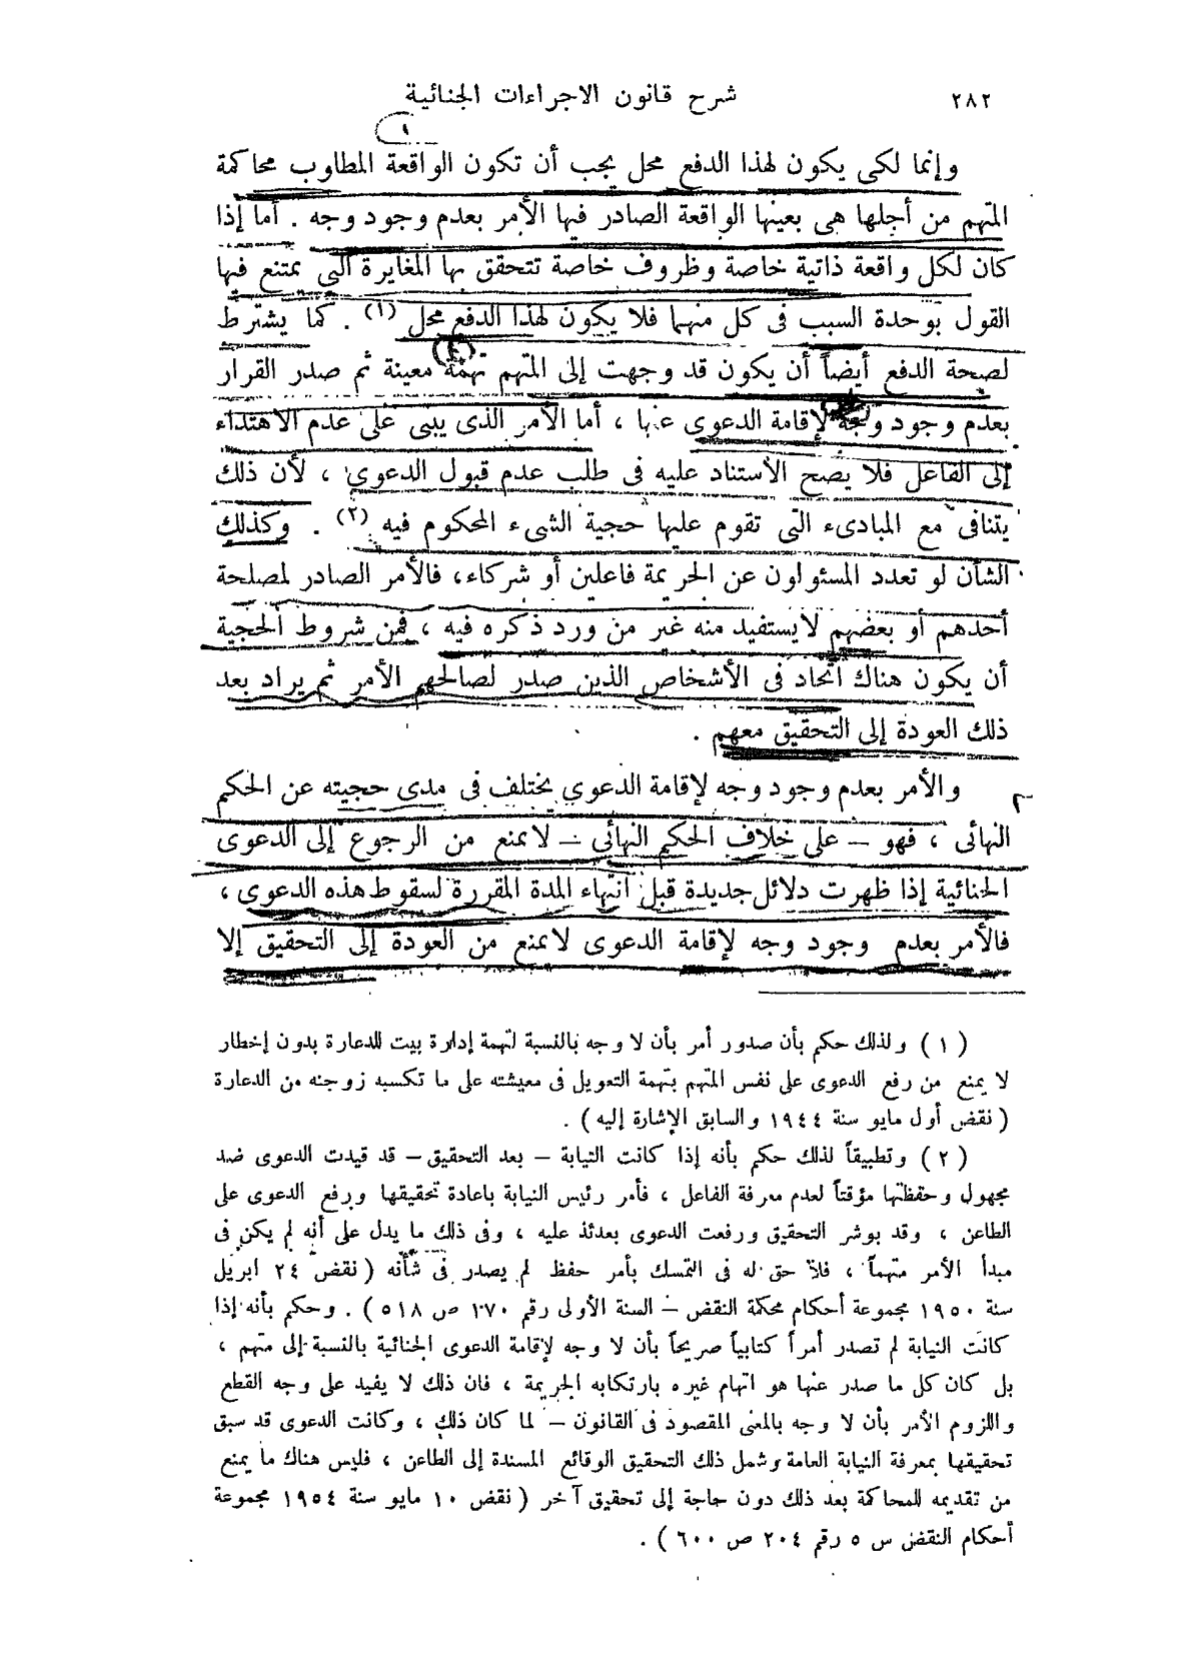 ٢٨٢ شرح قانون الاجراءات الجنائية
١
وإنما لكى يكون لهذا الدفع محل يجب أن تكون الواقعة المطلوب محاكمة
المتهم من أجلها هى بعينها الواقعة الصادر فيها الأمر بعدم وجود وجه . أما إذا
كان لكل واقعة ذاتية خاصة وظروف خاصة تتحقق بها المغايرة التى يمتنع فيها
القول بوحدة السبب فى كل منهما فلا يكون لهذا الدفع محل (١) . كما يشترط
لصحة الدفع أيضاً أن يكون قد وجهت إلى المتهم تهمة معينة ثم صدر القرار
بعدم وجود وجه لإقامة الدعوى عنها ، أما الأمر الذى يبنى على عدم الاهتداء
إلى الفاعل فلا يصح الاستناد عليه فى طلب عدم قبول الدعوى ، لأن ذلك
يتنافى مع المبادىء التى تقوم عليها حجية الشىء المحكوم فيه (٢) . وكذلك
الشأن لو تعدد المسئولون عن الجريمة فاعلين أو شركاء، فالأمر الصادر لمصلحة
أحدهم أو بعضهم لايستفيد منه غير من ورد ذكره فيه ، فمن شروط الحجية
أن يكون هناك اتحاد فى الأشخاص الذين صدر لصالحهم الأمر ثم يراد بعد
ذلك العودة إلى التحقيق معهم .
والأمر بعدم وجود وجه لإقامة الدعوى يختلف فى مدى حجيته عن الحكم
النهائى ، فهو – على خلاف الحكم النهائى – لا يمنع من الرجوع إلى الدعوى
الجنائية إذا ظهرت دلائل جديدة قبل انتهاء المدة المقررة لسقوط هذه الدعوى ،
فالأمر بعدم وجود وجه لإقامة الدعوى لا يمنع من العودة إلى التحقيق إلا
( ١ ) ولذلك حكم بأن صدور أمر بأن لا وجه بالنسبة لتهمة إدارة بيت للدعارة بدون إخطار
لا يمنع من رفع الدعوى على نفس المتهم بتهمة التعويل فى معيشته على ما تكسبه زوجته من الدعارة
( نقض أول مايو سنة ١٩٤٤ والسابق الإشارة إليه ) .
( ٢ ) وتطبيقاً لذلك حكم بأنه إذا كانت النيابة – بعد التحقيق – قد قيدت الدعوى ضد
مجهول وحفظتها مؤقتاً لعدم معرفة الفاعل ، فأمر رئيس النيابة باعادة تحقيقها ورفع الدعوى على
الطاعن ، وقد بوشر التحقيق ورفعت الدعوى بعدئذ عليه ، وفى ذلك ما يدل على أنه لم يكن فى
مبدأ الأمر متهماً ، فلا حق له فى التمسك بأمر حفظ لم يصدر فى شأنه ( نقض ٢٤ ابريل
سنة ١٩٥٠ مجموعة أحكام محكمة النقض – السنة الأولى رقم ١٧٠ ص ٥١٨ ) . وحكم بأنه إذا
كانت النيابة لم تصدر أمراً كتابياً صريحاً بأن لا وجه لإقامة الدعوى الجنائية بالنسبة إلى متهم ،
بل كان كل ما صدر عنها هو اتهام غيره بارتكابه الجريمة ، فان ذلك لا يفيد على وجه القطع
واللزوم الأمر بأن لا وجه بالمعنى المقصود فى القانون – لما كان ذلك ، وكانت الدعوى قد سبق
تحقيقها بمعرفة النيابة العامة وشمل ذلك التحقيق الوقائع المسندة إلى الطاعن ، فليس هناك ما يمنع
من تقديمه للمحاكمة بعد ذلك دون حاجة إلى تحقيق آخر ( نقض ١٠ مايو سنة ١٩٥٤ مجموعة
أحكام النقض س ٥ رقم ٢٠٤ ص ٦٠٠ ) .